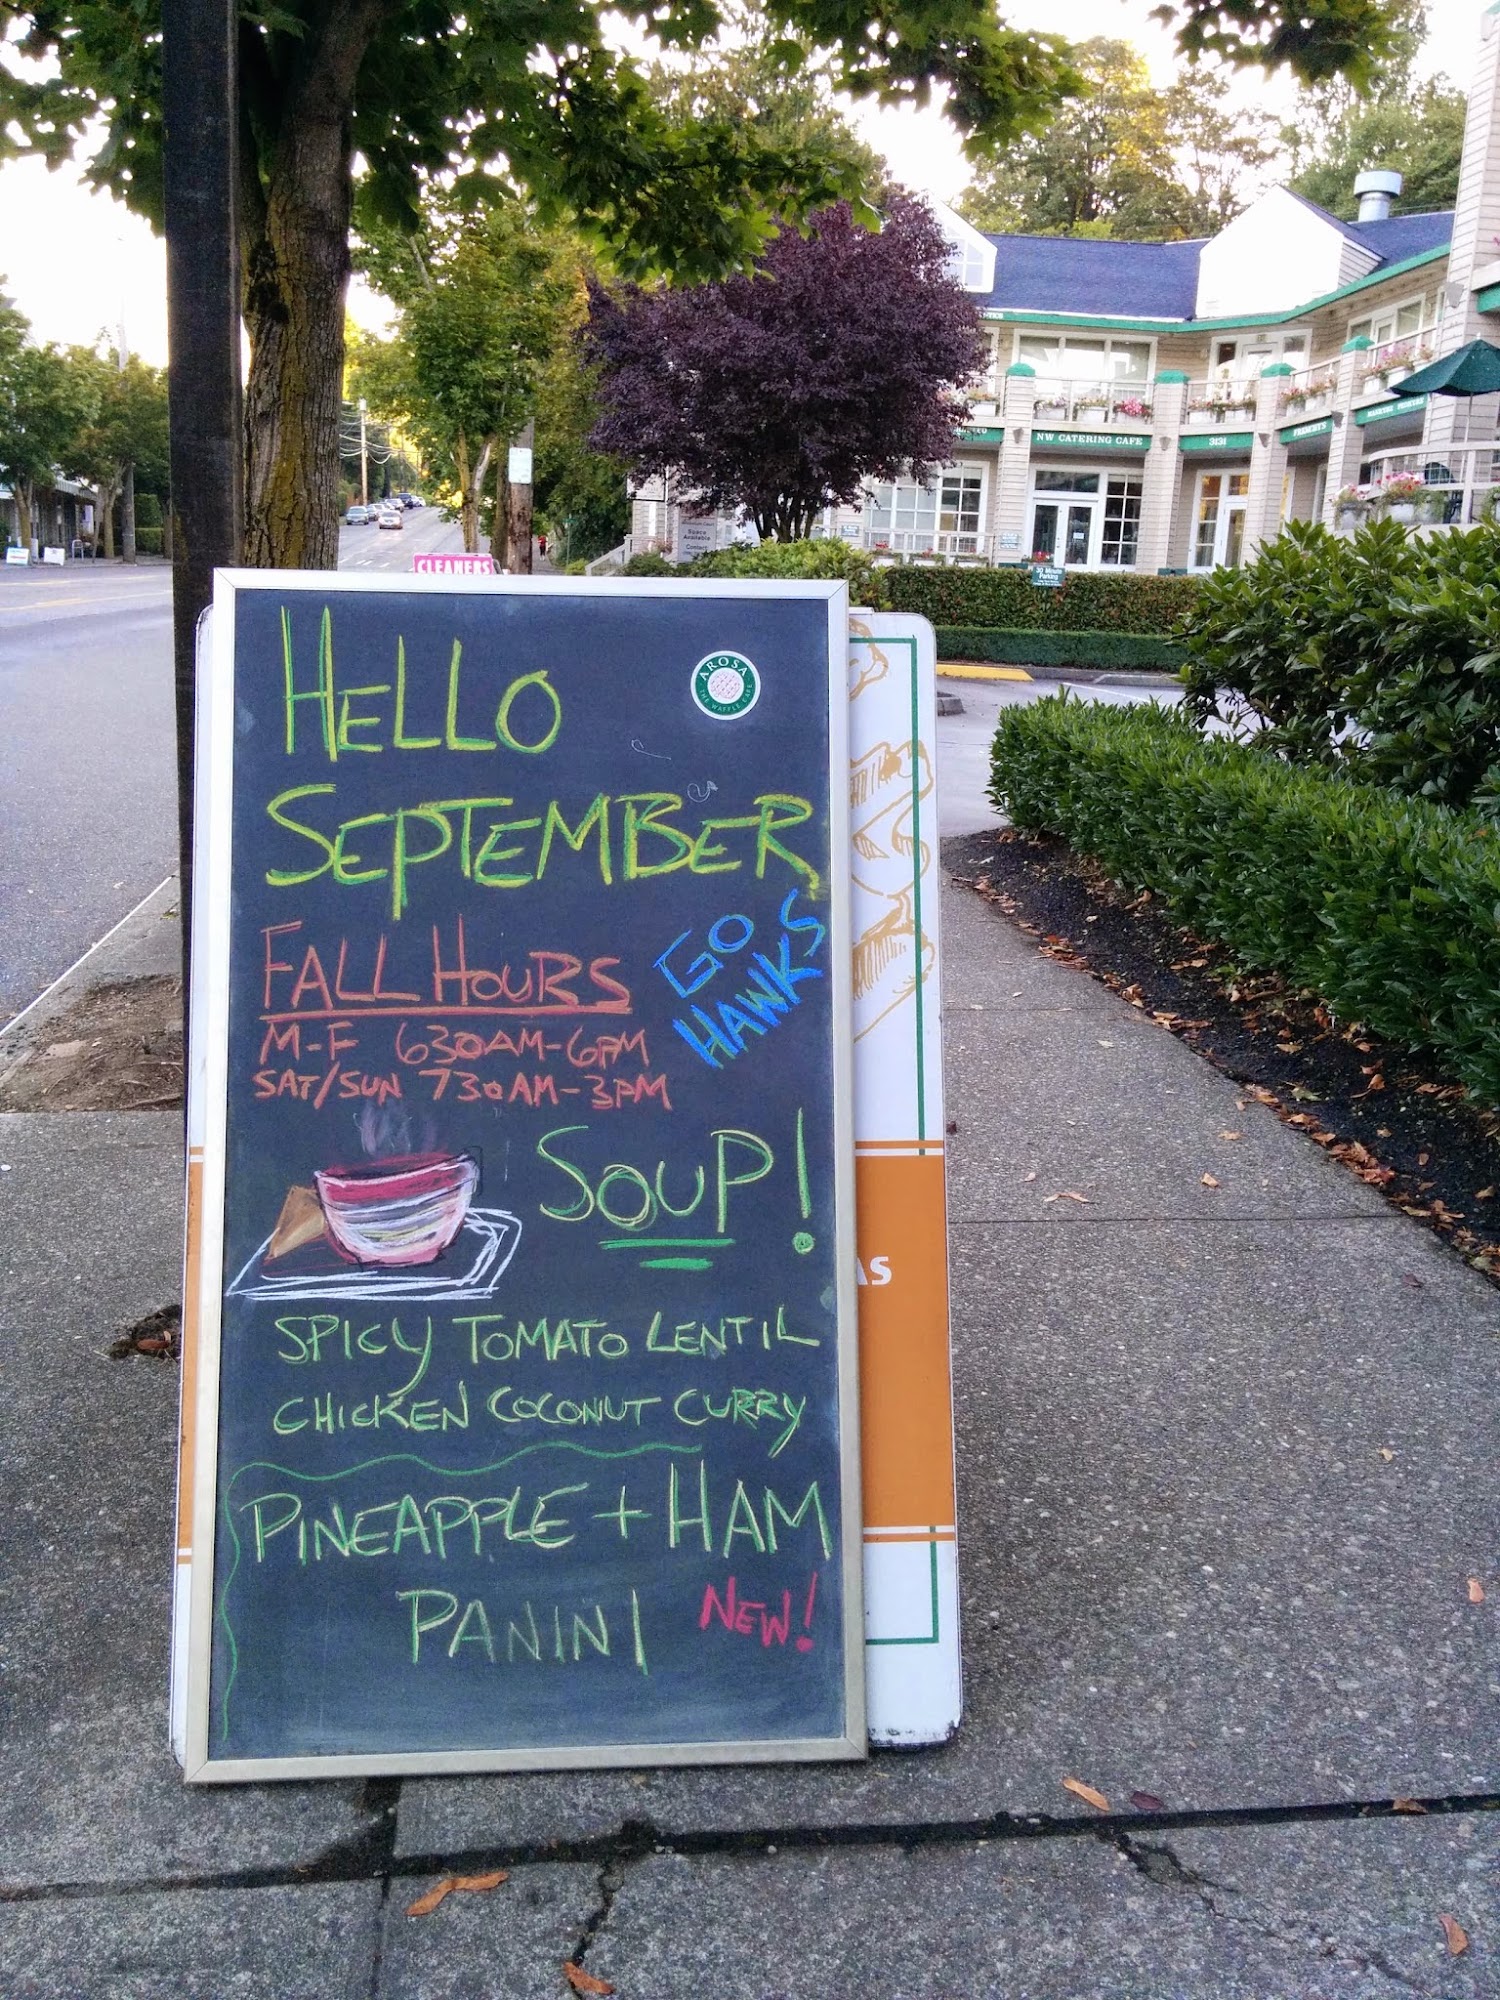 HELLO
SEPTEMBER
AROSA
THE WAFFLE CAFE
FALL HOURS
M-F 630AM-6PM
SAT/SUN 730AM-3PM
GO
HAWKS
SOUP!
SPICY TOMATO LENTIL
CHICKEN COCONUT CURRY
PINEAPPLE + HAM
PANINI
NEW!
AS
CLEANERS
NW CATERING CAFE
3131
30 Minute
Parking
Space
Available
Contact